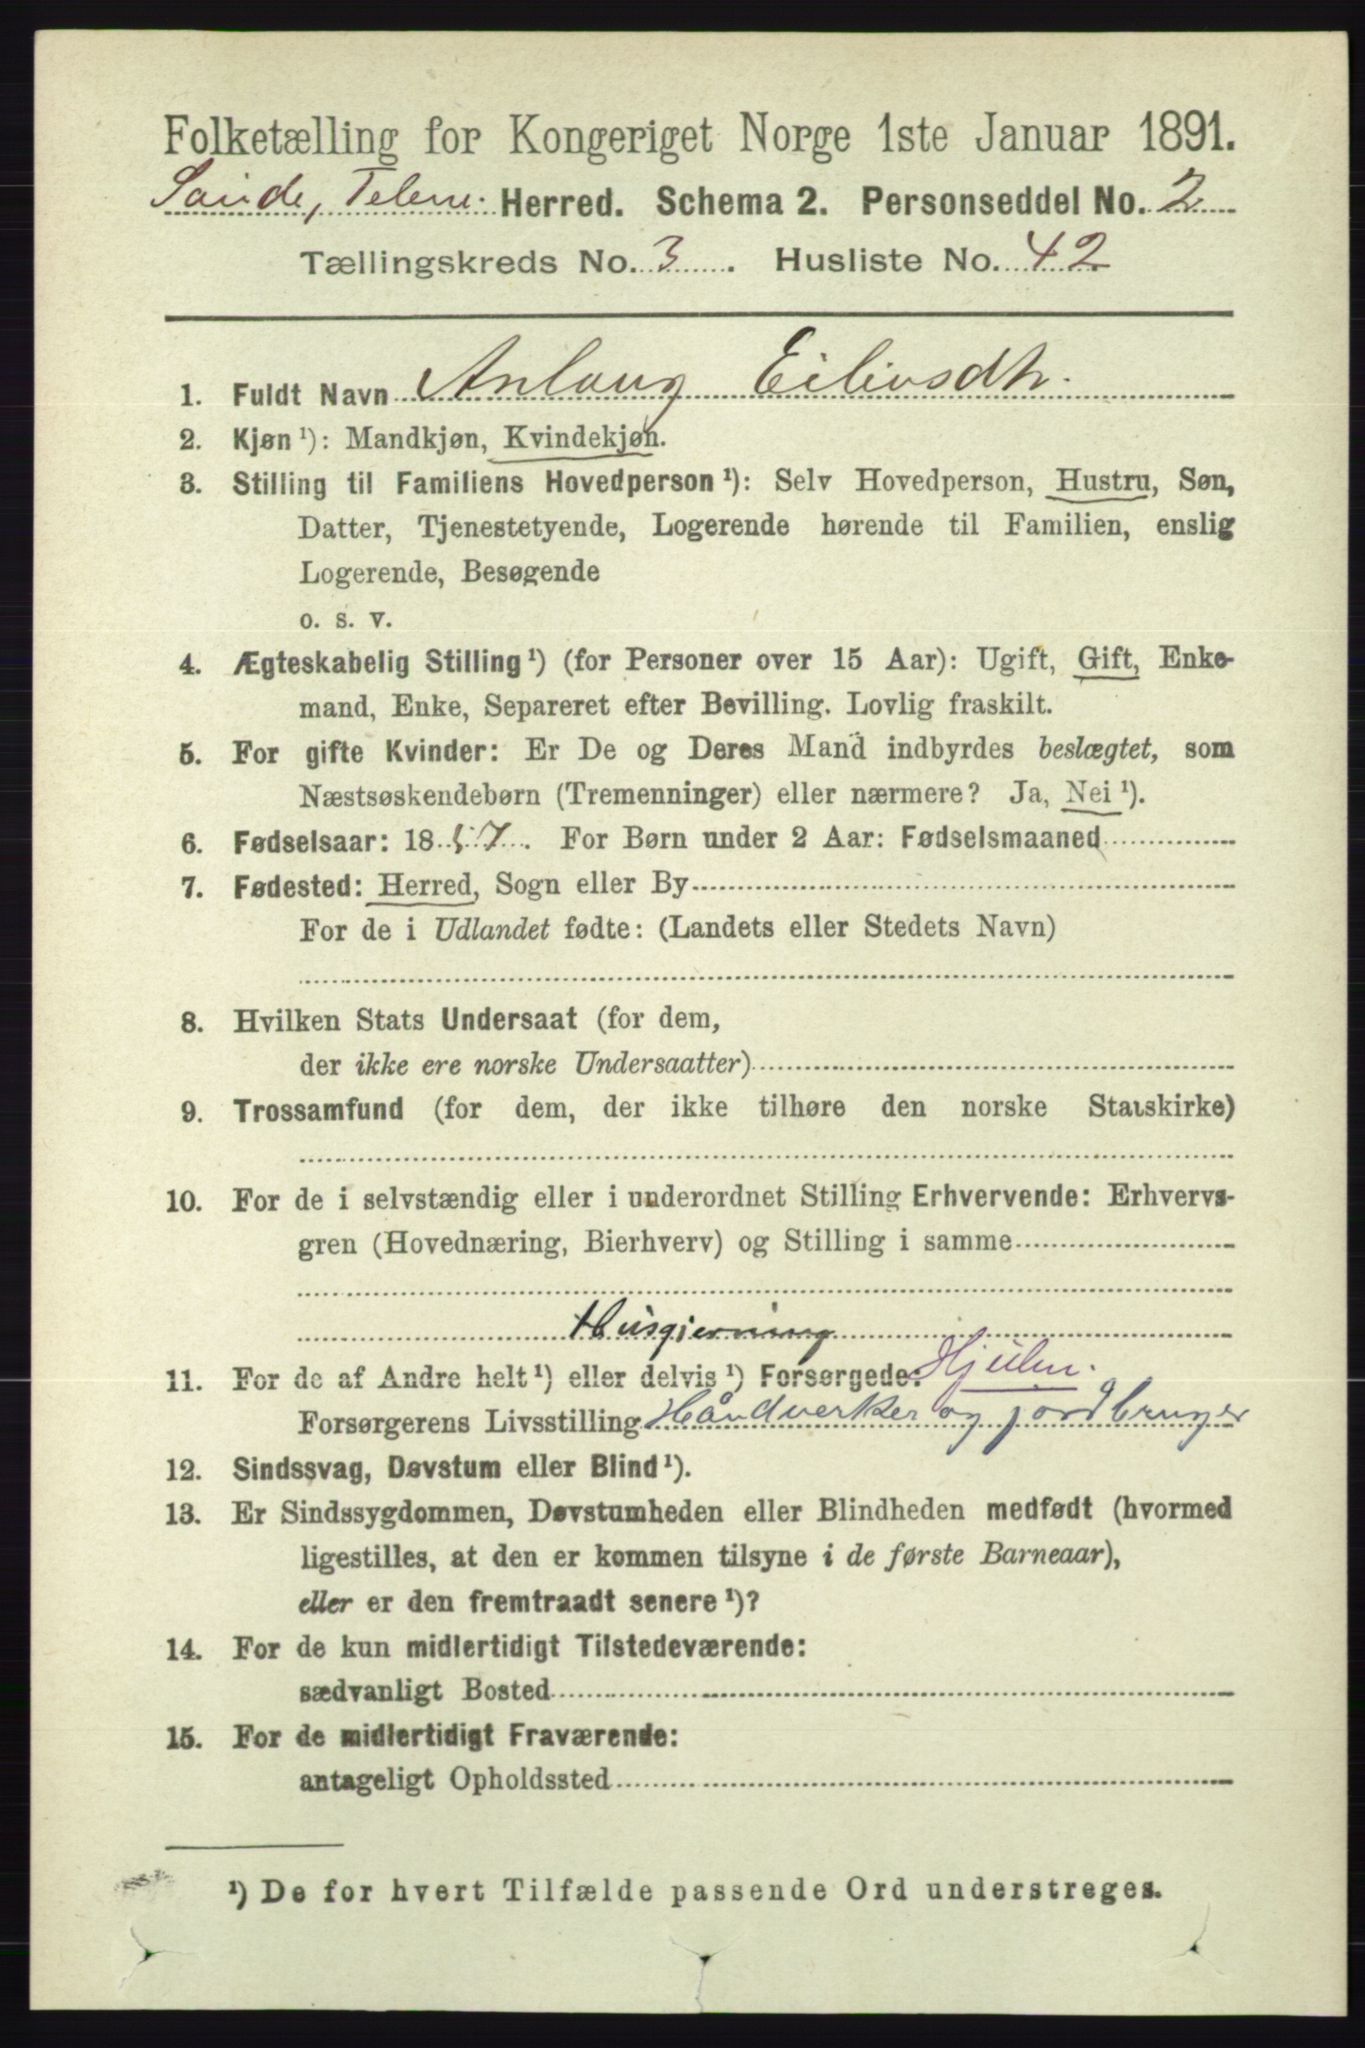 Folketælling for Kongeriget Norge 1ste Januar 1891.
Sande, Telem. Herred. Schema 2. Personseddel No. 2
Tællingskreds No. 3. Husliste No. 42
1. Fuldt Navn Anlaug Eilivsdtr.
2. Kjøn ¹): Mandkjøn, Kvindekjøn.
3. Stilling til Familiens Hovedperson ¹): Selv Hovedperson, Hustru, Søn,
Datter, Tjenestetyende, Logerende hørende til Familien, enslig
Logerende, Besøgende
o. s. v.
4. Ægteskabelig Stilling ¹) (for Personer over 15 Aar): Ugift, Gift, Enke-
mand, Enke, Separeret efter Bevilling. Lovlig fraskilt.
5. For gifte Kvinder: Er De og Deres Mand indbyrdes beslægtet, som
Næstsøskendebørn (Tremenninger) eller nærmere? Ja, Nei ¹).
6. Fødselsaar: 1857. For Børn under 2 Aar: Fødselsmaaned
7. Fødested: Herred, Sogn eller By
For de i Udlandet fødte: (Landets eller Stedets Navn)
8. Hvilken Stats Undersaat (for dem,
der ikke ere norske Undersaatter)
9. Trossamfund (for dem, der ikke tilhøre den norske Statskirke)
10. For de i selvstændig eller i underordnet Stilling Erhvervende: Erhvervs-
gren (Hovednæring, Bierhverv) og Stilling i samme
Husgjerning
11. For de af Andre helt ¹) eller delvis ¹) Forsørgede. Hjulm.
Forsørgerens Livsstilling Håndverker og jordbruger
12. Sindssvag, Døvstum eller Blind ¹).
13. Er Sindssygdommen, Døvstumheden eller Blindheden medfødt (hvormed
ligestilles, at den er kommen tilsyne i de første Barneaar),
eller er den fremtraadt senere ¹)?
14. For de kun midlertidigt Tilstedeværende:
sædvanligt Bosted
15. For de midlertidigt Fraværende:
antageligt Opholdssted
¹) De for hvert Tilfælde passende Ord understreges.